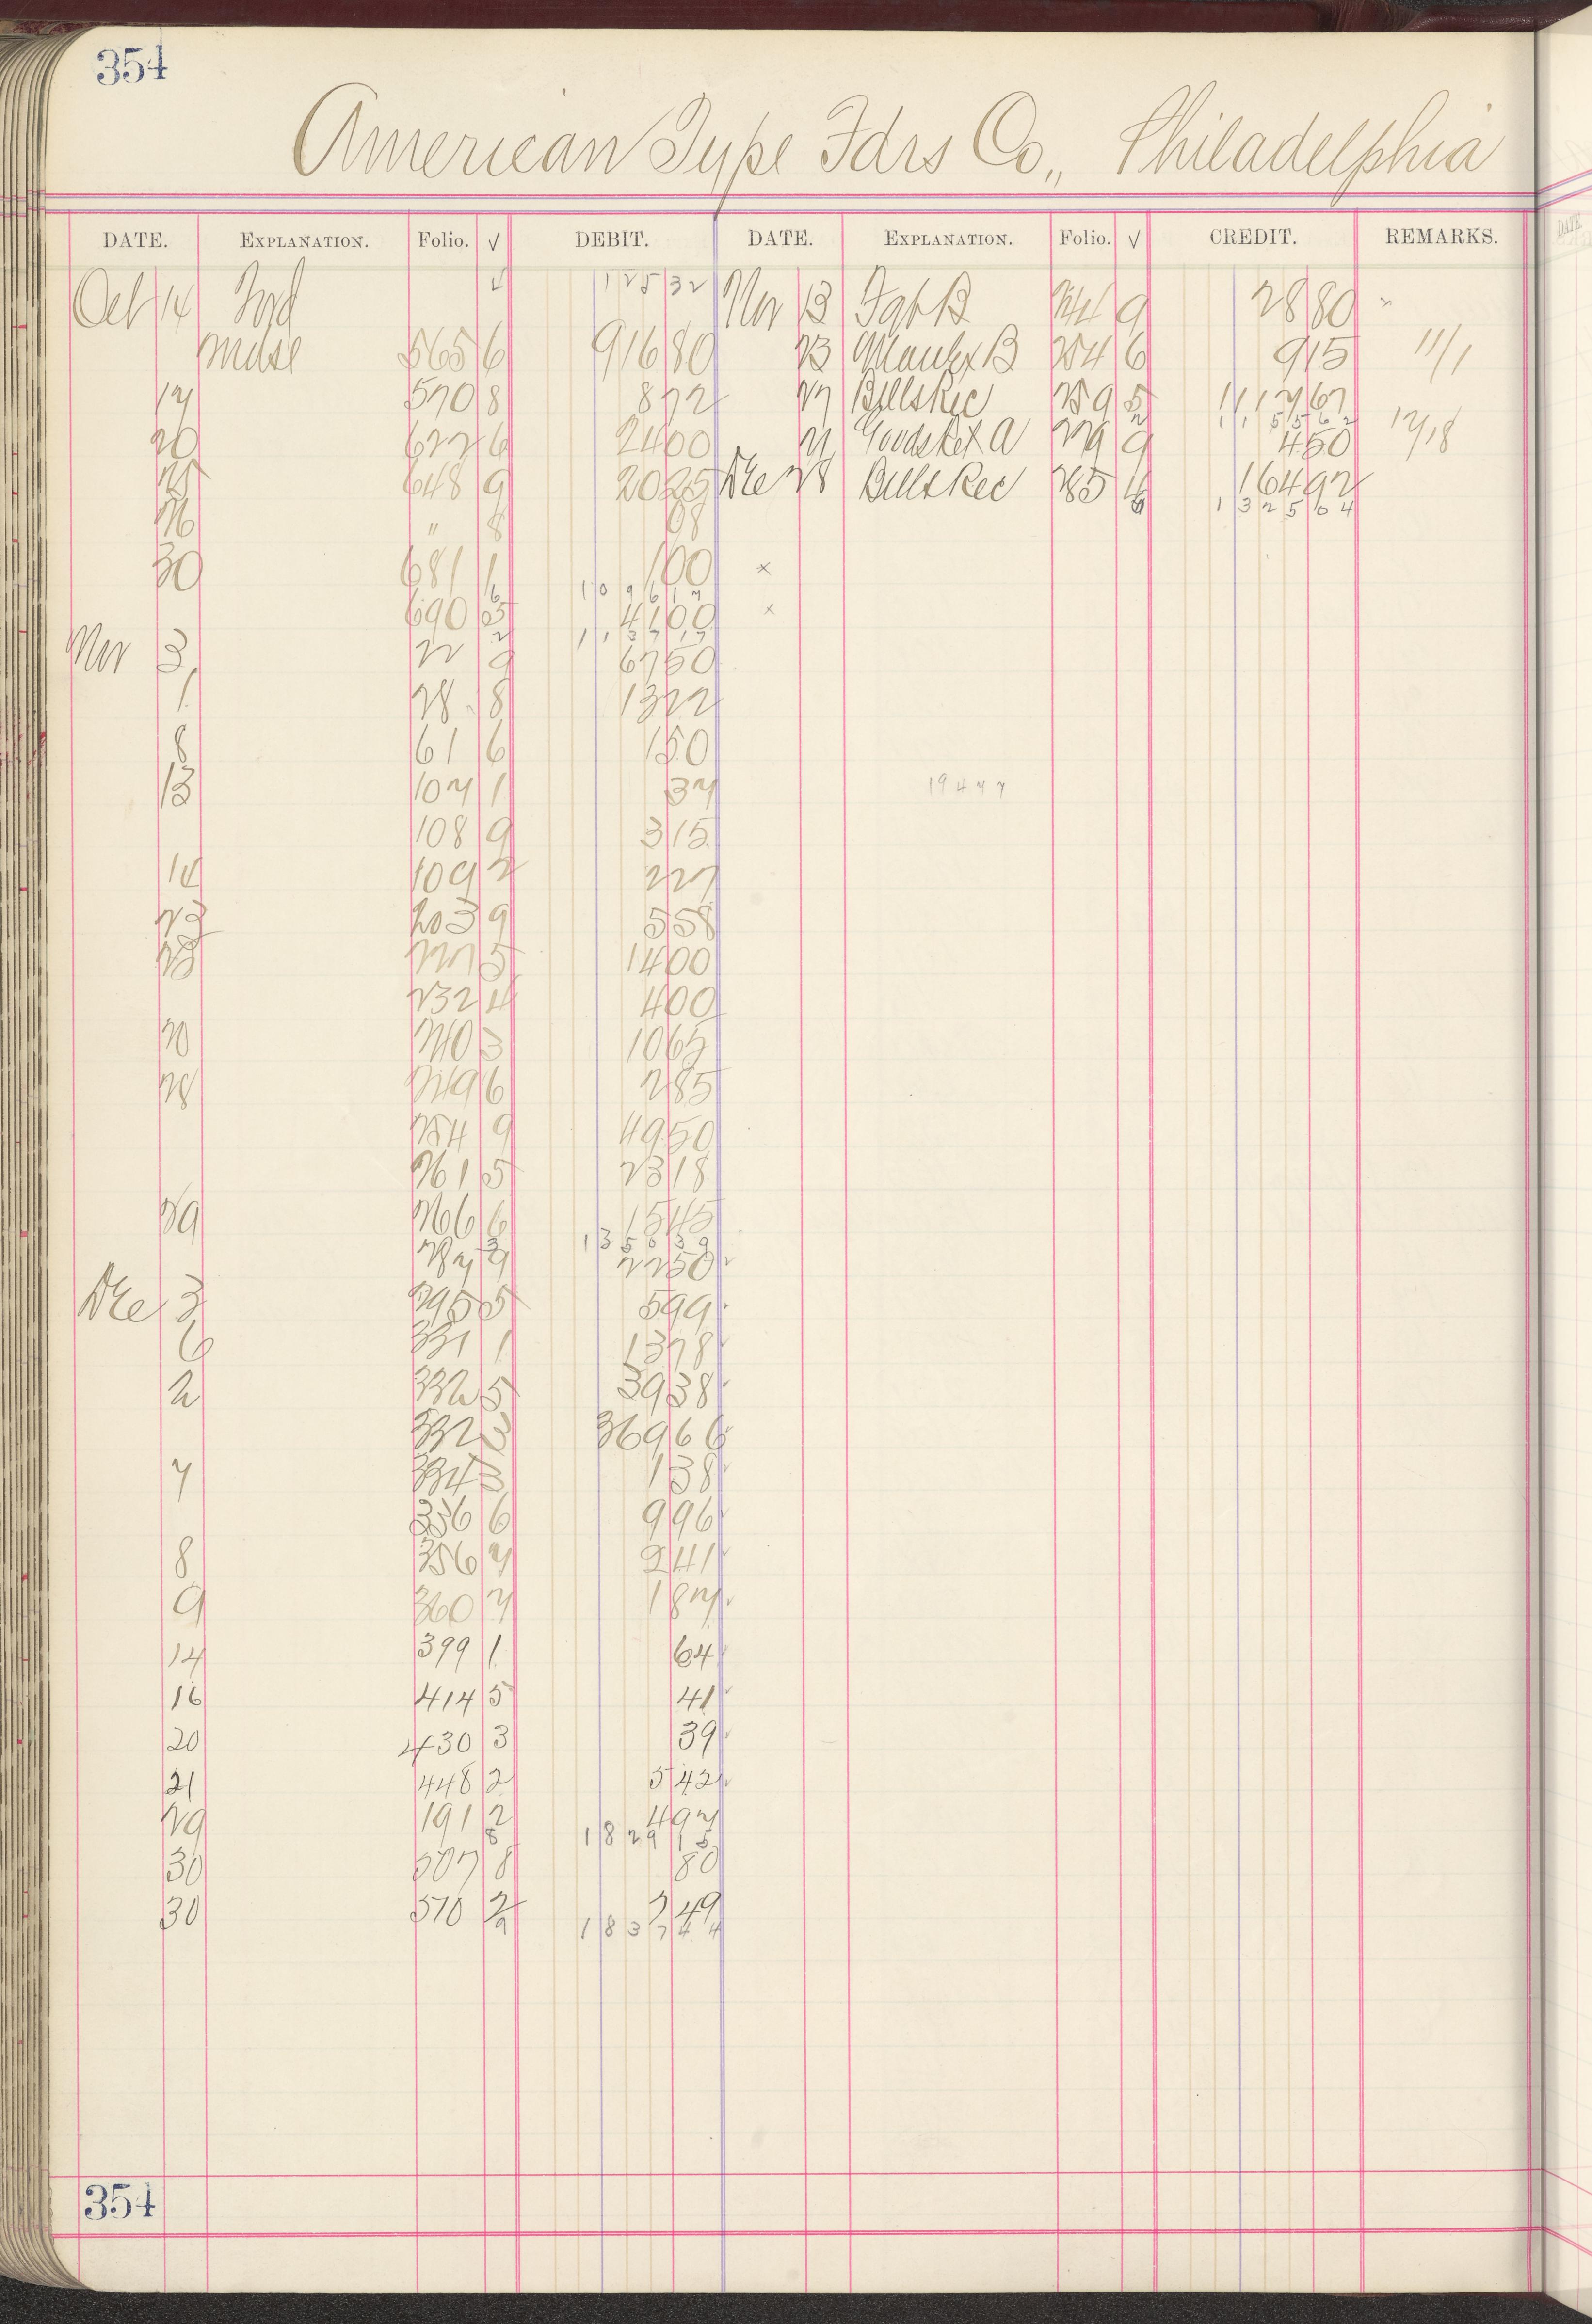 354
American Type Fdrs Co., Philadelphia
DATE. EXPLANATION. Folio. √ DEBIT. DATE. EXPLANATION. Folio. √ CREDIT. REMARKS.
Oct 14 √ 125 32 Nov 13 9 28 80
Mdse 565 6 916 80 23 B 254 6 9 15 11/1
17 570 8 8 72 27 Bills Rec 259 5 1117 67
20 627 6 24 00 21 A 279 9 4 50 12/18
648 9 20 25 Dec 28 Bills Rec 285 4 164 92
26 " 8 68 1 3 2 5 6 4
30 681 1 1 00 ×
1 0 9 6 1 7
690 5 41 00 ×
Nov 3 22 9 67 50
1 28 8 13 22
8 61 6 1 50
13 107 1 37 19477
108 9 3 15
14 109 2 2 27
23 203 9 5 58
227 5 14 00
232 4 4 00
240 3 10 65
28 249 6 2 85
254 9 49 50
261 5 23 18
29 266 6 15 45
22 50
Dec 3 295 5 5 99
6 331 1 13 78
2 332 5 39 38
332 3 369 66
7 334 3 1 38
336 6 9 96
8 356 7 2 41
9 360 7 1 87
14 399 1 64
16 414 5 41
20 430 3 39
21 448 2 5 42
29 191 2 4 97
1 8 2 9 1 5
30 507 8 80
30 510 2 2 49
354